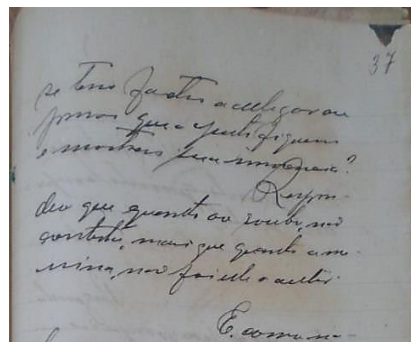 37
se tem factos a allegar ou
provas que a justifiquem
e mostrem sua innocencia?
Respon-
deu que quanto ao roubo, não
contesta, mais que quanto a me-
nina, não foi elle o autor.
E como na-